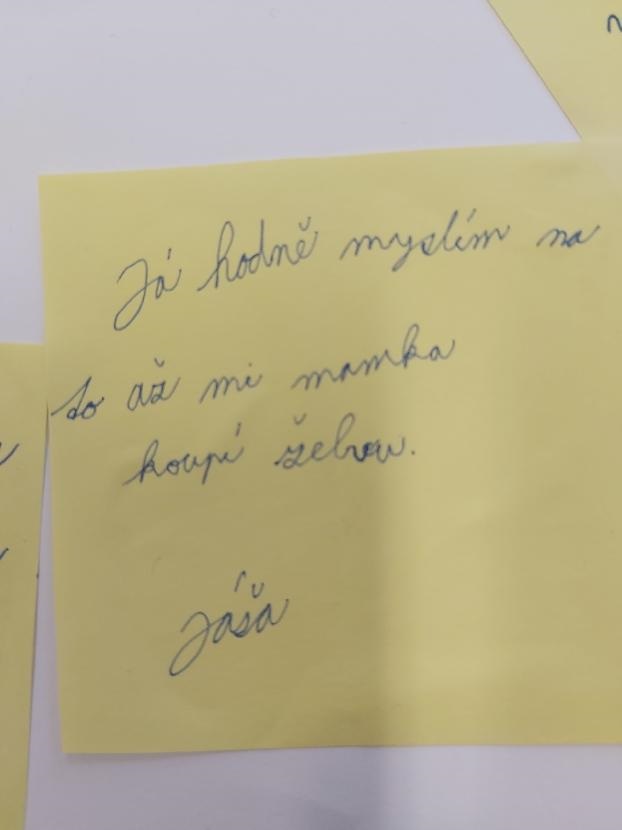 Já hodně myslím na
to až mi mamka
koupí želvu.
Jáša